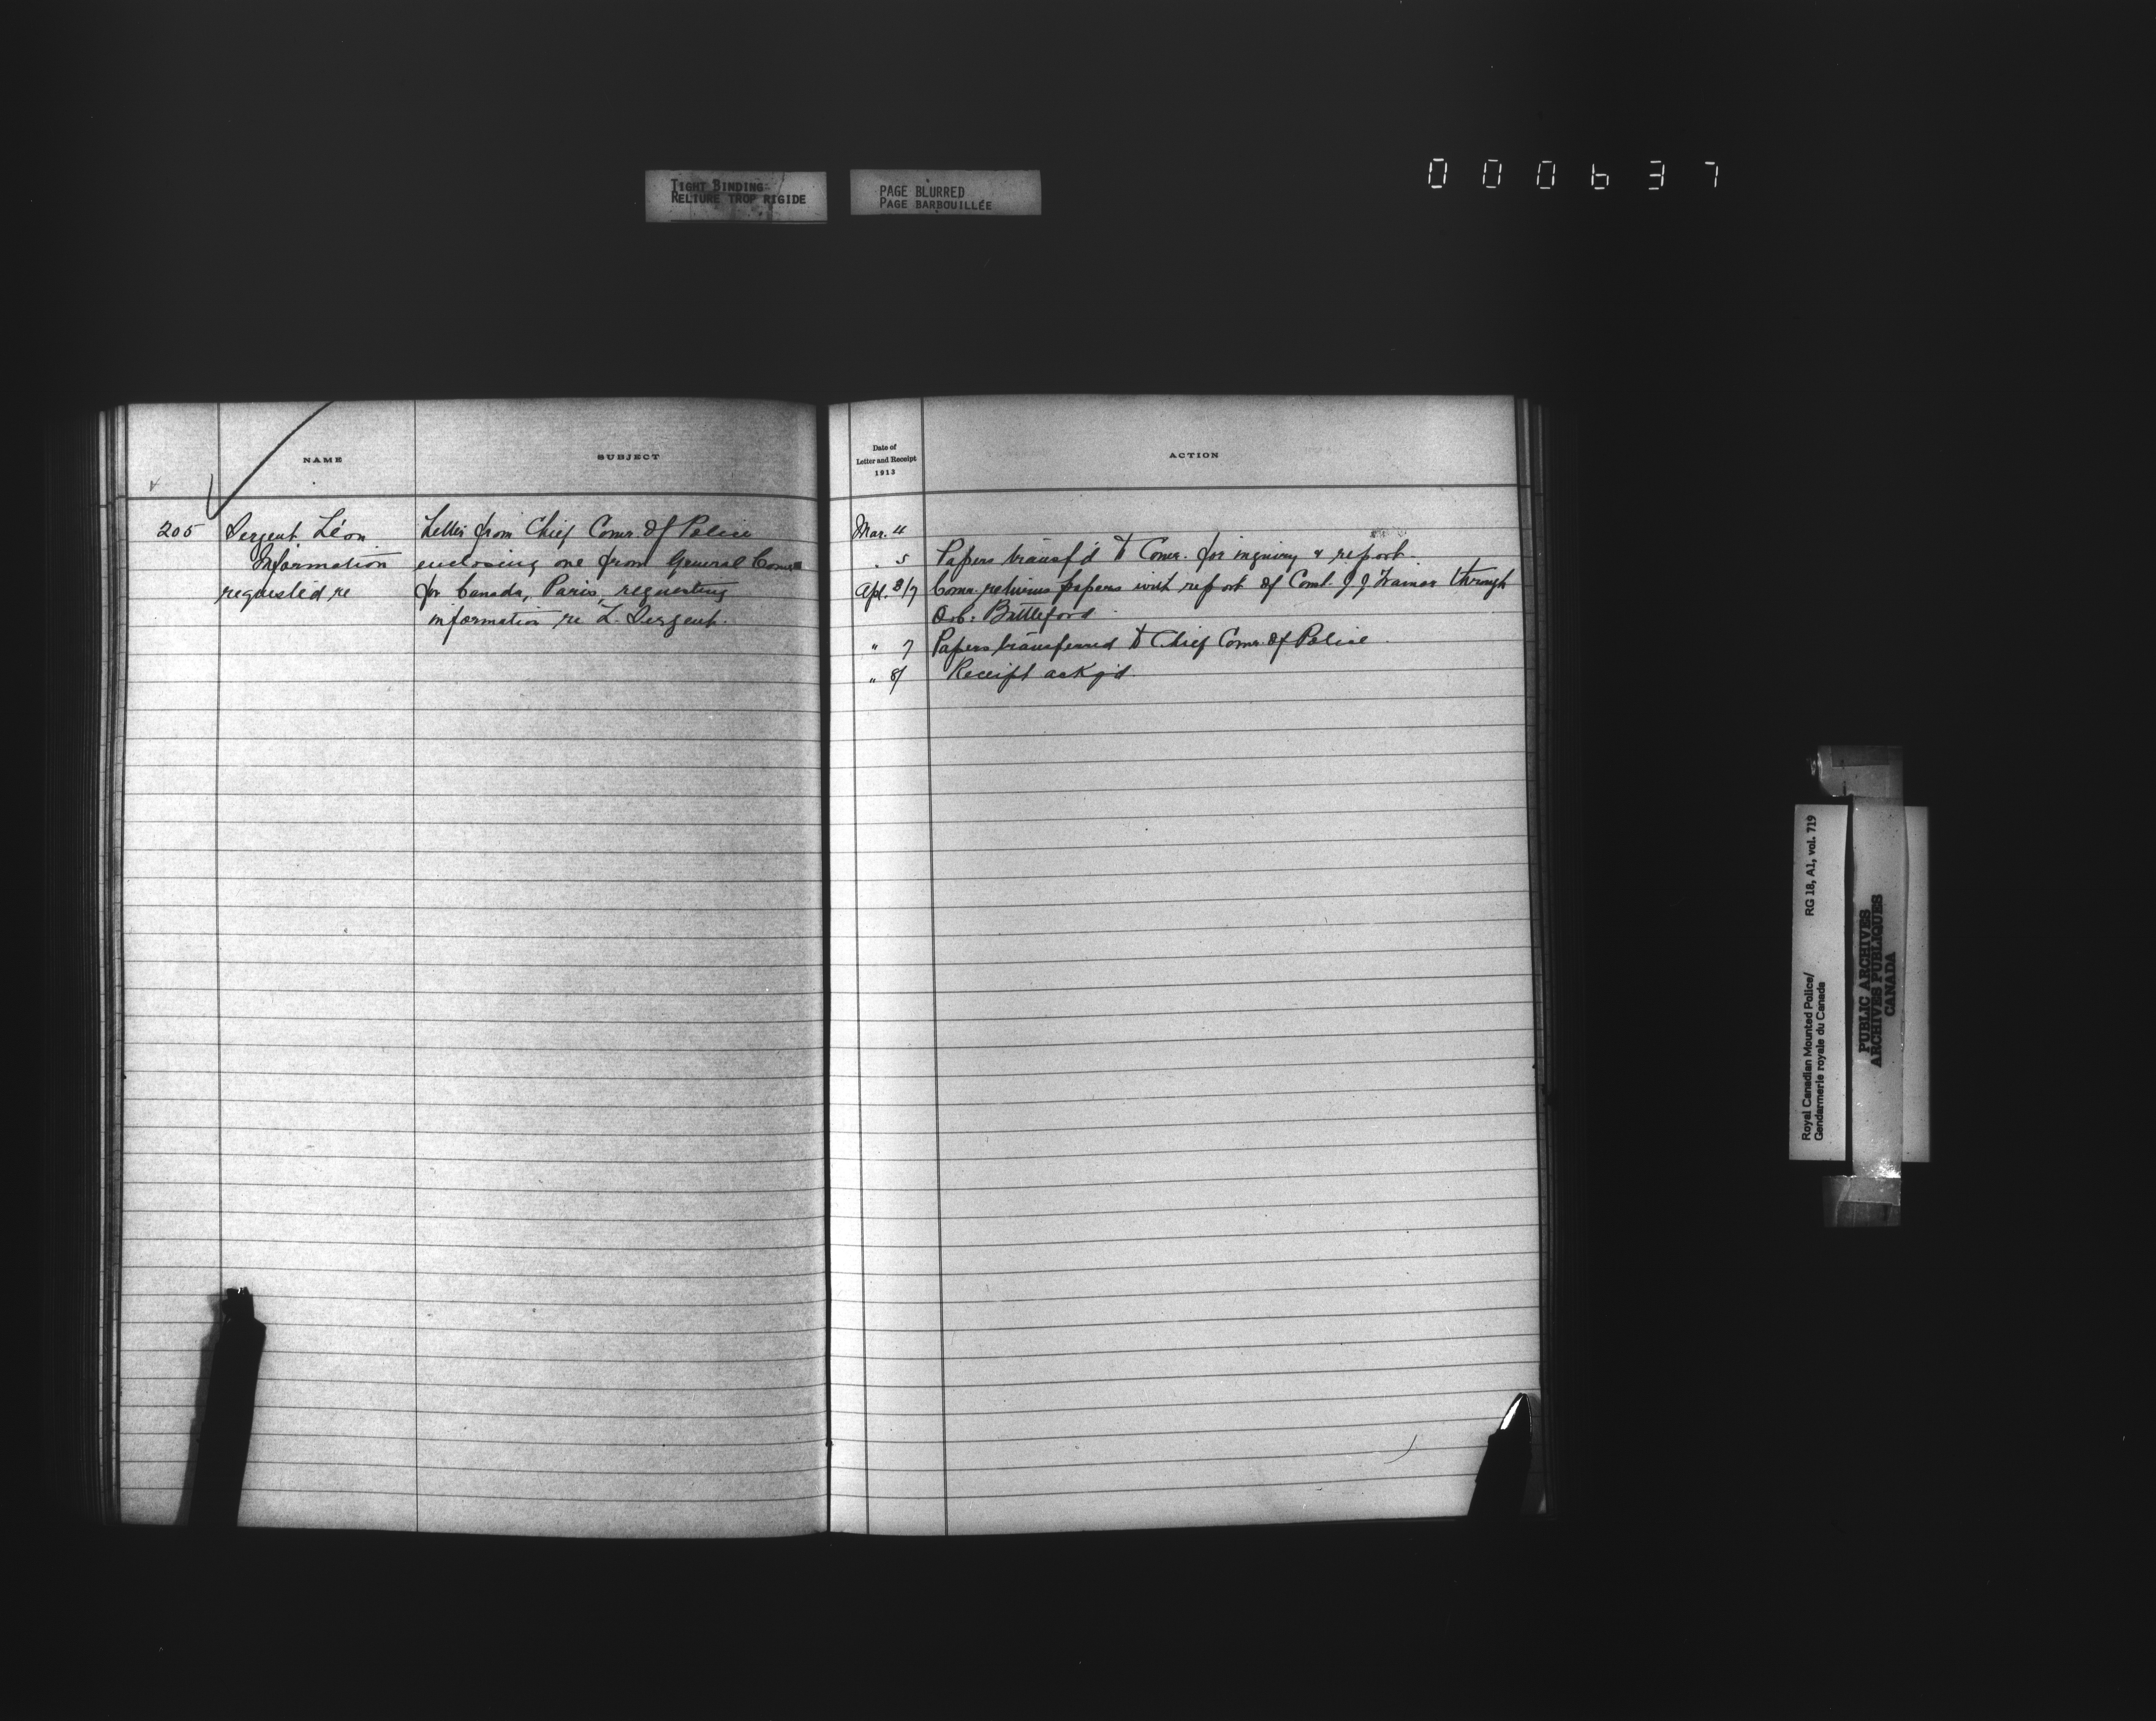 TIGHT BINDING
RELIURE TROP RIGIDE
PAGE BLURRED
PAGE BARBOUILLÉE
000637
NAME
SUBJECT
205
Sergent Léon
Information
requested re
Letter from Chief Comr. of Police
enclosing one from General Comr
for Canada, Paris, requesting
information re L. Sergent.
Date of
Letter and Receipt
1913
ACTION
Mar. 4
" 5 Papers transf'd to Comr. for inquiry & report.
Apl. 3/7 Comr. returns papers with report of Const. J J through
O.C. Battleford
" 7 Papers transferred to Chief Comr. of Police
" 8/ Receipt ackg'd.
Royal Canadian Mounted Police/
Gendarmerie royale du Canada
RG 18, A1, vol. 719
PUBLIC ARCHIVES
ARCHIVES PUBLIQUES
CANADA